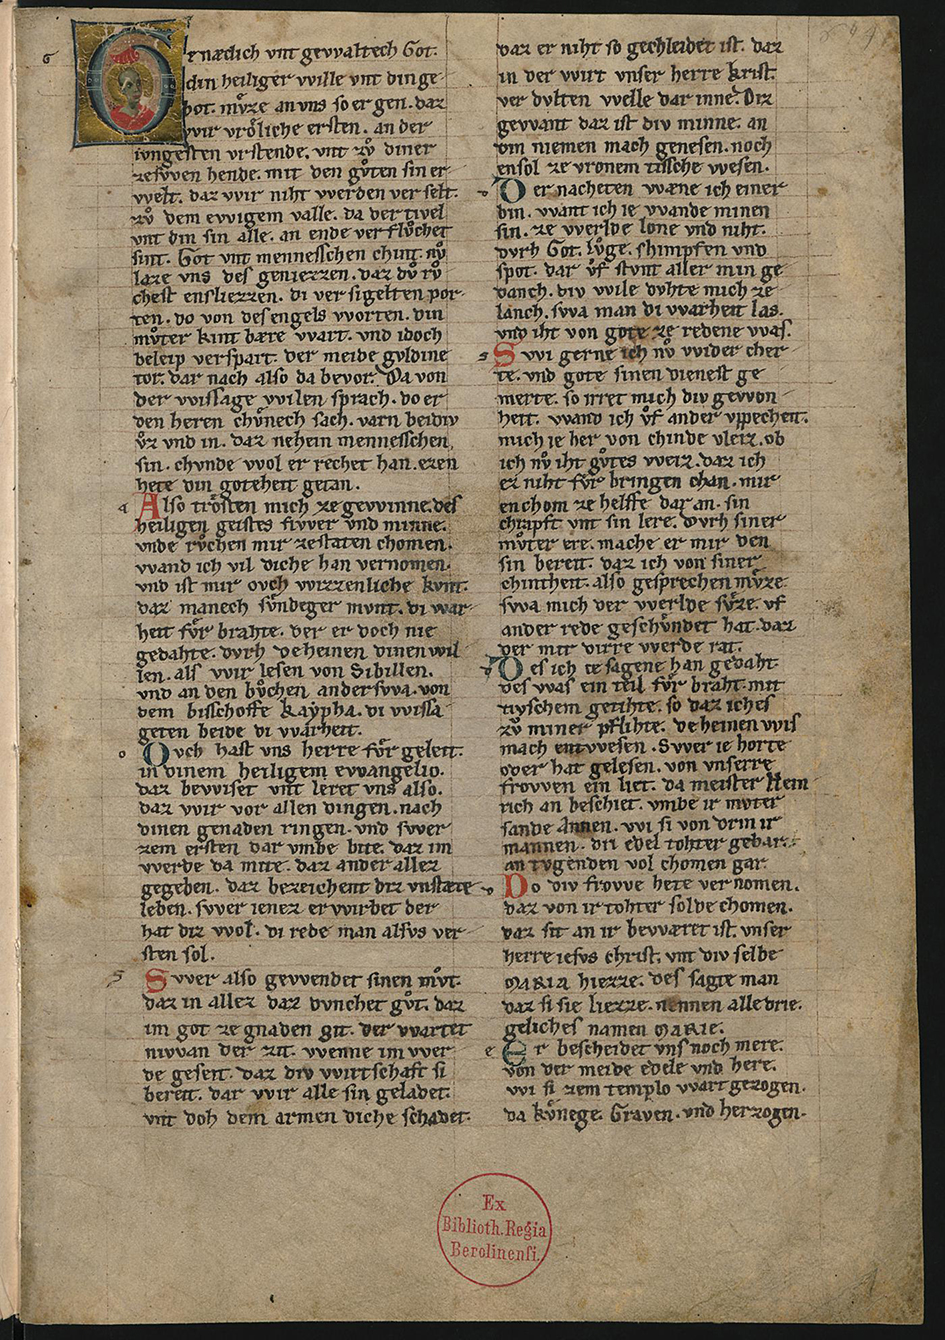 6
Genædich vnt gevvaltech Got.
din heiliger vville vnt din ge-
bot. mvͦze an vns so er gen. daz
vvir vrȯliche ersten. an der
ivngesten vrstende. vnt zvͦ diner
zesvven hende. mit den gvͦten sin er-
vvelt. daz vvir niht vverden ver selt.
zvͦ dem evvigem valle. da der tivel
vnt din sin alle. an ende ver flvͦchet
sint. Got vnt mennesschen chint nvͦ
laze vns des geniezzen. daz dvͦ rvͦ
chest ensliezzen. di ver sigelten por-
ten. do von des engels vvorten. din
mvͦter kint bære vvart. vnd idoch
beleip verspart. der meide gvldine
tor. dar nach also da bevor. Da von
der vvissage vvilen sprach. do er
den heren chvͤnech sach. varn beidiv
vͦz vnd in. daz nehein mennesschen
sin. chvnde vvol er rechet han. ezen
hete din goteheit getan.
a Also trȯsten mich ze gevvinne. des
heiligen geistes fivver vnd minne.
vnde rvͦchen mir ze staten chomen.
vvand ich vil diche han vernomen.
vnd ist mir ovch vvizzenliche kvnt.
daz manech svͤndeger mvnt. di vvar-
heit fvͤr brahte. der er doch nie
gedahte. dvrh deheinen dinen vvil
len. als vvir lesen von Sibillen.
vnd an den bvͦchen andersvva. von
dem bisschoffe Kaẏpha. di vvissa
geten beide di vvarheit.
o Ovch hast vns herre fvͤr geleit.
in dinem heiligem evvangelio.
daz bevviset vnt leret vns also.
daz vvir vor allen dingen. nach
dinen genaden ringen. vnd svver
zem ersten dar vmbe bite. daz im
vverde da mite. daz ander allez
gegeben. daz bezeichent diz vnstæte
leben. svver ienez er vvirbet der
hat diz vvol. di rede man alsvs ver-
sten sol.
s Svver also gevvendet sinen mvͦt.
daz in allez daz dvnchet gvͦt. daz
im got ze gnaden git. der vvartet
nivvan der zit. vvenne im vver
de geseit. daz div vvirtschaft si
bereit. dar vvir alle sin geladet.
vnt doh dem armen diche schadet.
daz er niht so gechleidet ist. daz
in der vvirt vnser herre krist.
ver dvlten vvelle dar inne. Diz
gevvant daz ist div minne. an
din niemen mach genesen. noch
ensol ze vronem tissche vvesen.
Der nacheten vvæne ich einer
bin. vvant ich ie vvande minen
sin. ze vverlde lone vnd niht.
dvrh Got. lvͤge. shimpfen vnd
spot. dar vͦf stvnt aller min ge
danch. div vvile dvhte mich ze
lanch. svva man di vvarheit las.
vnd iht von gote ze redene vvas.
s Svvi gerne ich nvͦ vvider cher
te. vnd gote sinen dienest ge
merte. so irret mich div gevvon
heit. vvand ich vͦf ander vppecheit.
mich ie her von chinde vleiz. ob
ich nvͦ iht gvͦtes vveiz. daz ich
ez niht fvͤr bringen chan. mir
enchom ze helffe dar an. sin
chrapft vnt sin lere. dvrh siner
mvͦter ere. mache er mir den
sin bereit. daz ich von siner
chintheit. also gesprechen mvͤze.
svva mich der vverlde svͤze. vf
ander rede geschvͤndet hat. daz
der mit dirre vverde rat.
Des ich ce sagene han gedaht
des vvas ein teil fvͤr braht. mit
tivschem getihte. so daz iches
zvͦ miner pflihte. deheinen vvis
mach entvvesen. Svver ie horte
oder hat gelesen. von vnserre
frovven ein liet. da meister Hein
rich an beschiet. vmbe ir mvter
sande Annen. vvi si von drin ir
mannen. dri edel tohter gebar.
an tvgenden vol chomen gar
Do div frovve hete ver nomen.
daz von ir tohter solde chomen.
daz sit an ir bevværet ist. vnser
herre iesvs christ. vnt div selbe
MARIA hiezze. des sagte man
daz si sie liezze. nennen alle drie.
geliches namen MARIE.
e Er bescheidet vns noch mere.
von der meide edele vnd here.
vvi si zem templo vvart gezogen.
da kvͤnege. Graven. vnd herzogen.
Ex
Biblioth. Regia
Berolinensi.